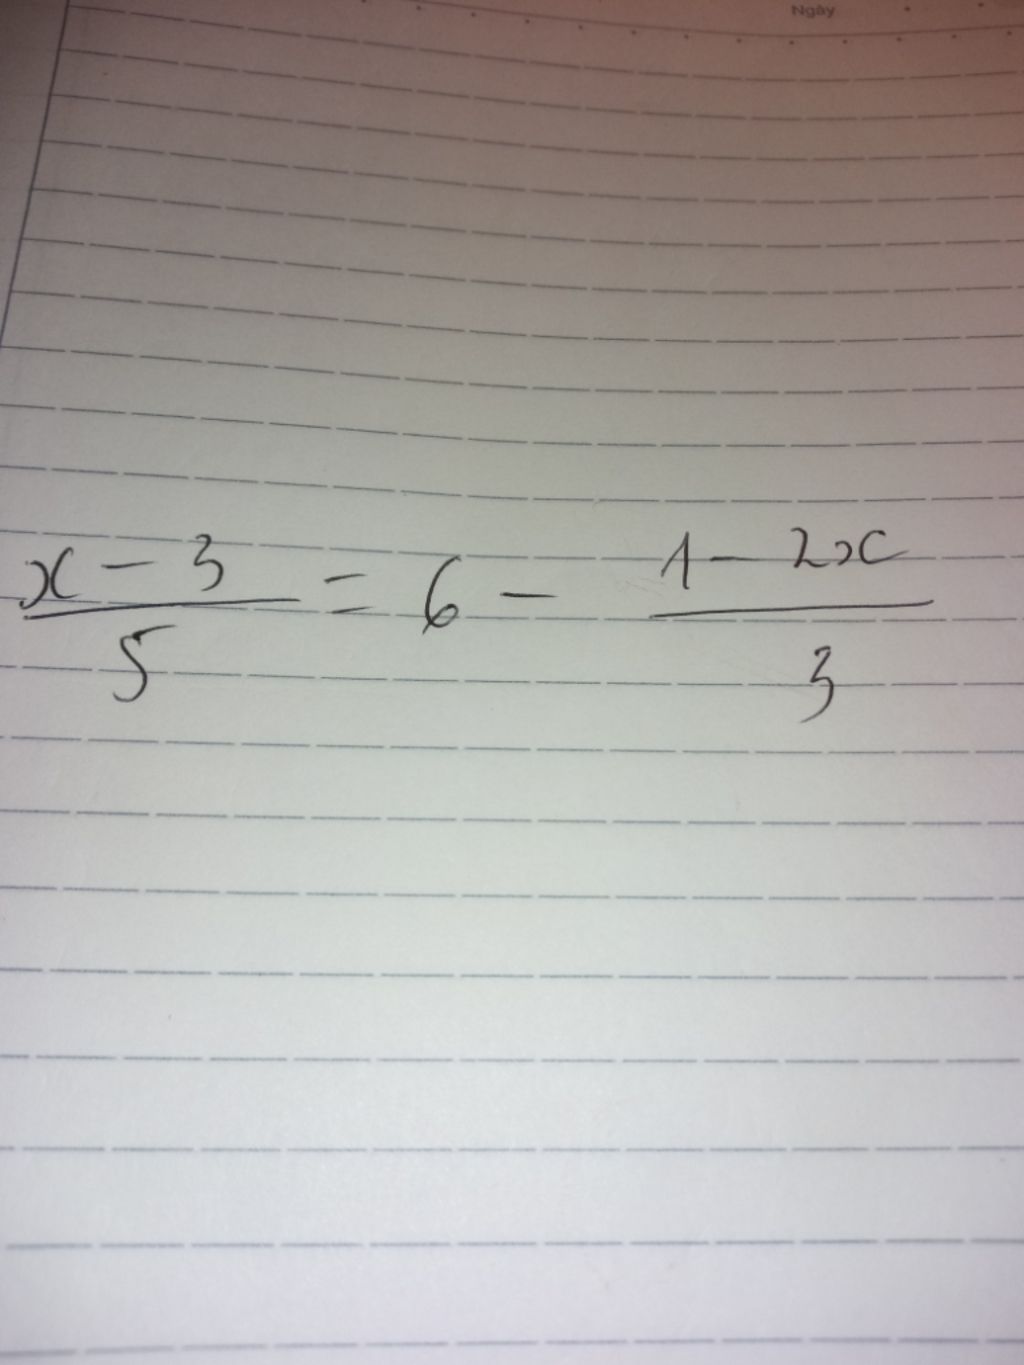 Ngày
x - 3 / 5 = 6 - 1 - 2x / 3